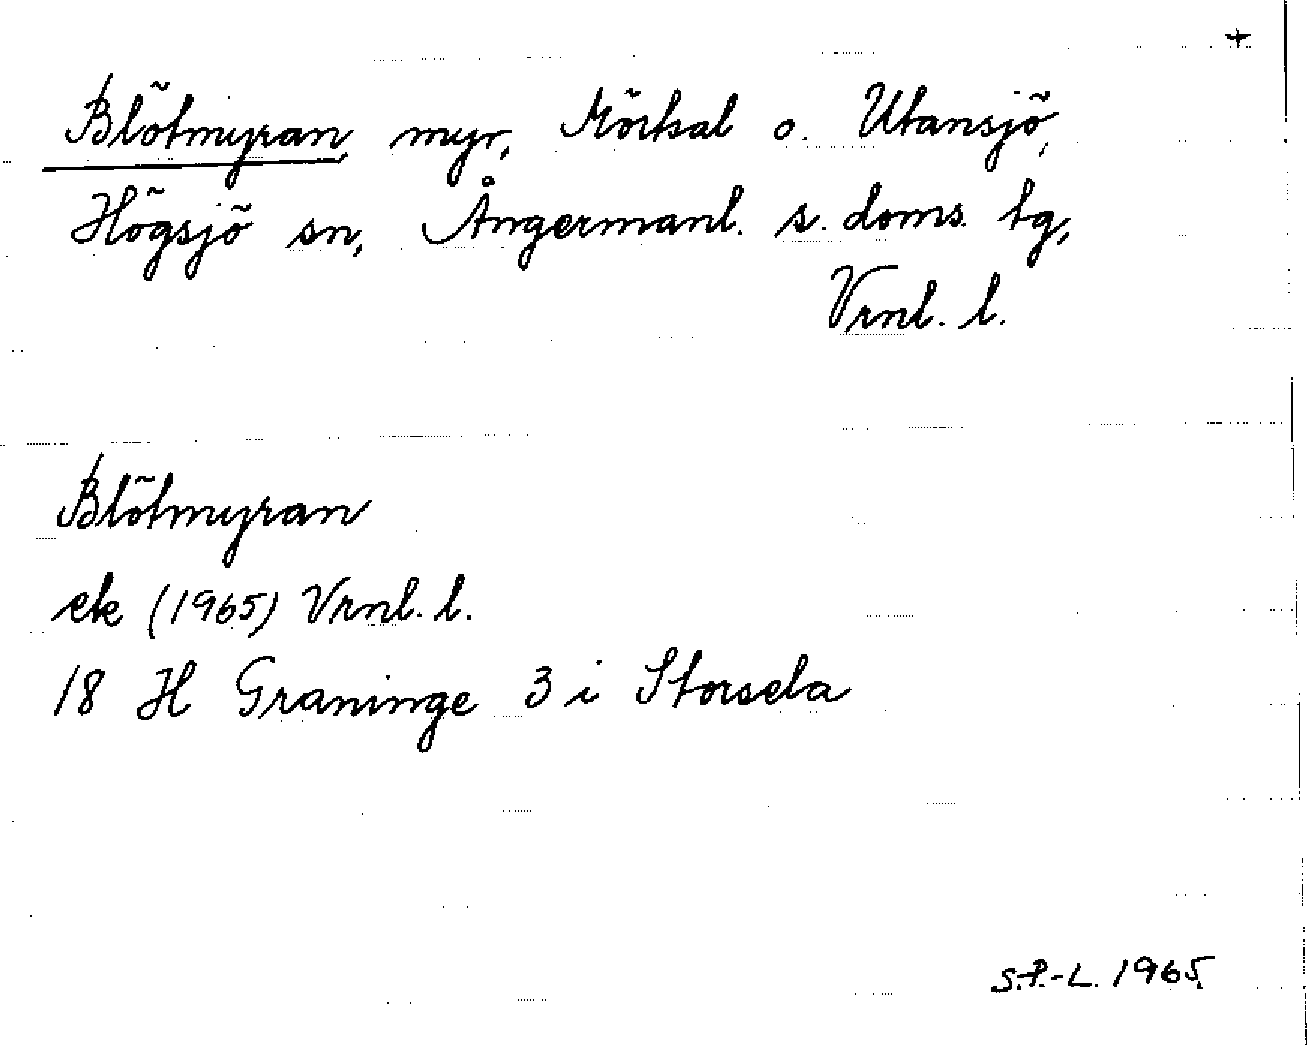 +
Blötmyran, myr, Mörtsal o. Utansjö,
Högsjö sn, Ångermanl. s. doms. tg,
Vrnl. l.
Blötmyran
ek (1965) Vrnl. l.
18 H Graninge 3 i Storsela
S.P.-L. 1965